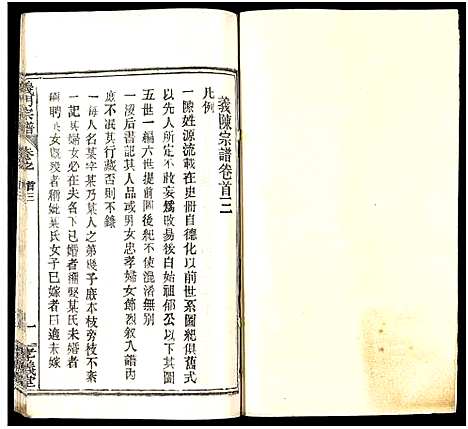 義陳宗譜卷首三
凡例
一陳姓源流載在史冊自德化以前世系圖紀俱舊式
以先人所定不敢妄為改易後自始祖郁公以下其圖
五世一編六世提前圖後紀不使混淆無別
一沒后書記其人品或男女忠孝婦女節烈敘入譜內
庶不泯其行藏否則不錄
一每人名某字某乃某人之第幾子庶本枝旁枝不紊
一記其婦女必在夫名下已婚者稱娶某氏未婚者
稱聘某女既歿者稱妣某氏女子已嫁者曰適未嫁
義門宗譜
卷之首三
一